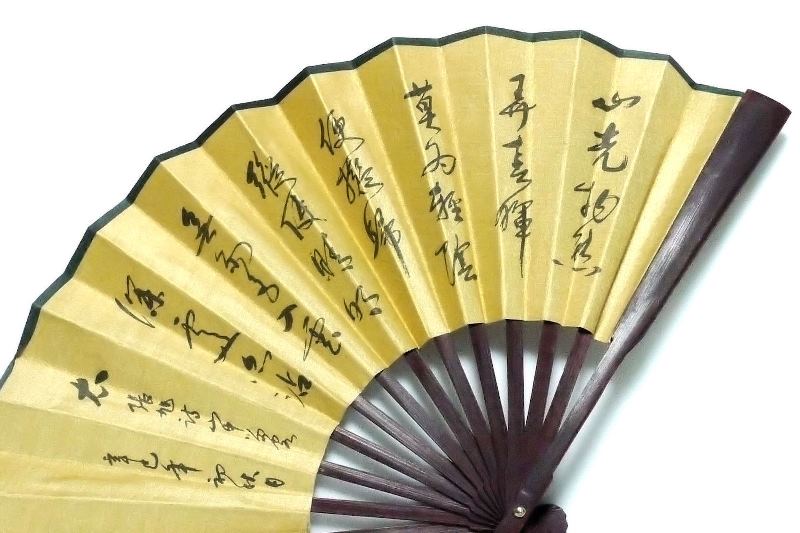 山光物態
弄春暉
莫为輕陰
便擬歸
縱使晴明
無雨色入雲
深處亦沾
衣
張旭詩山中留客
辛巳年初秋日